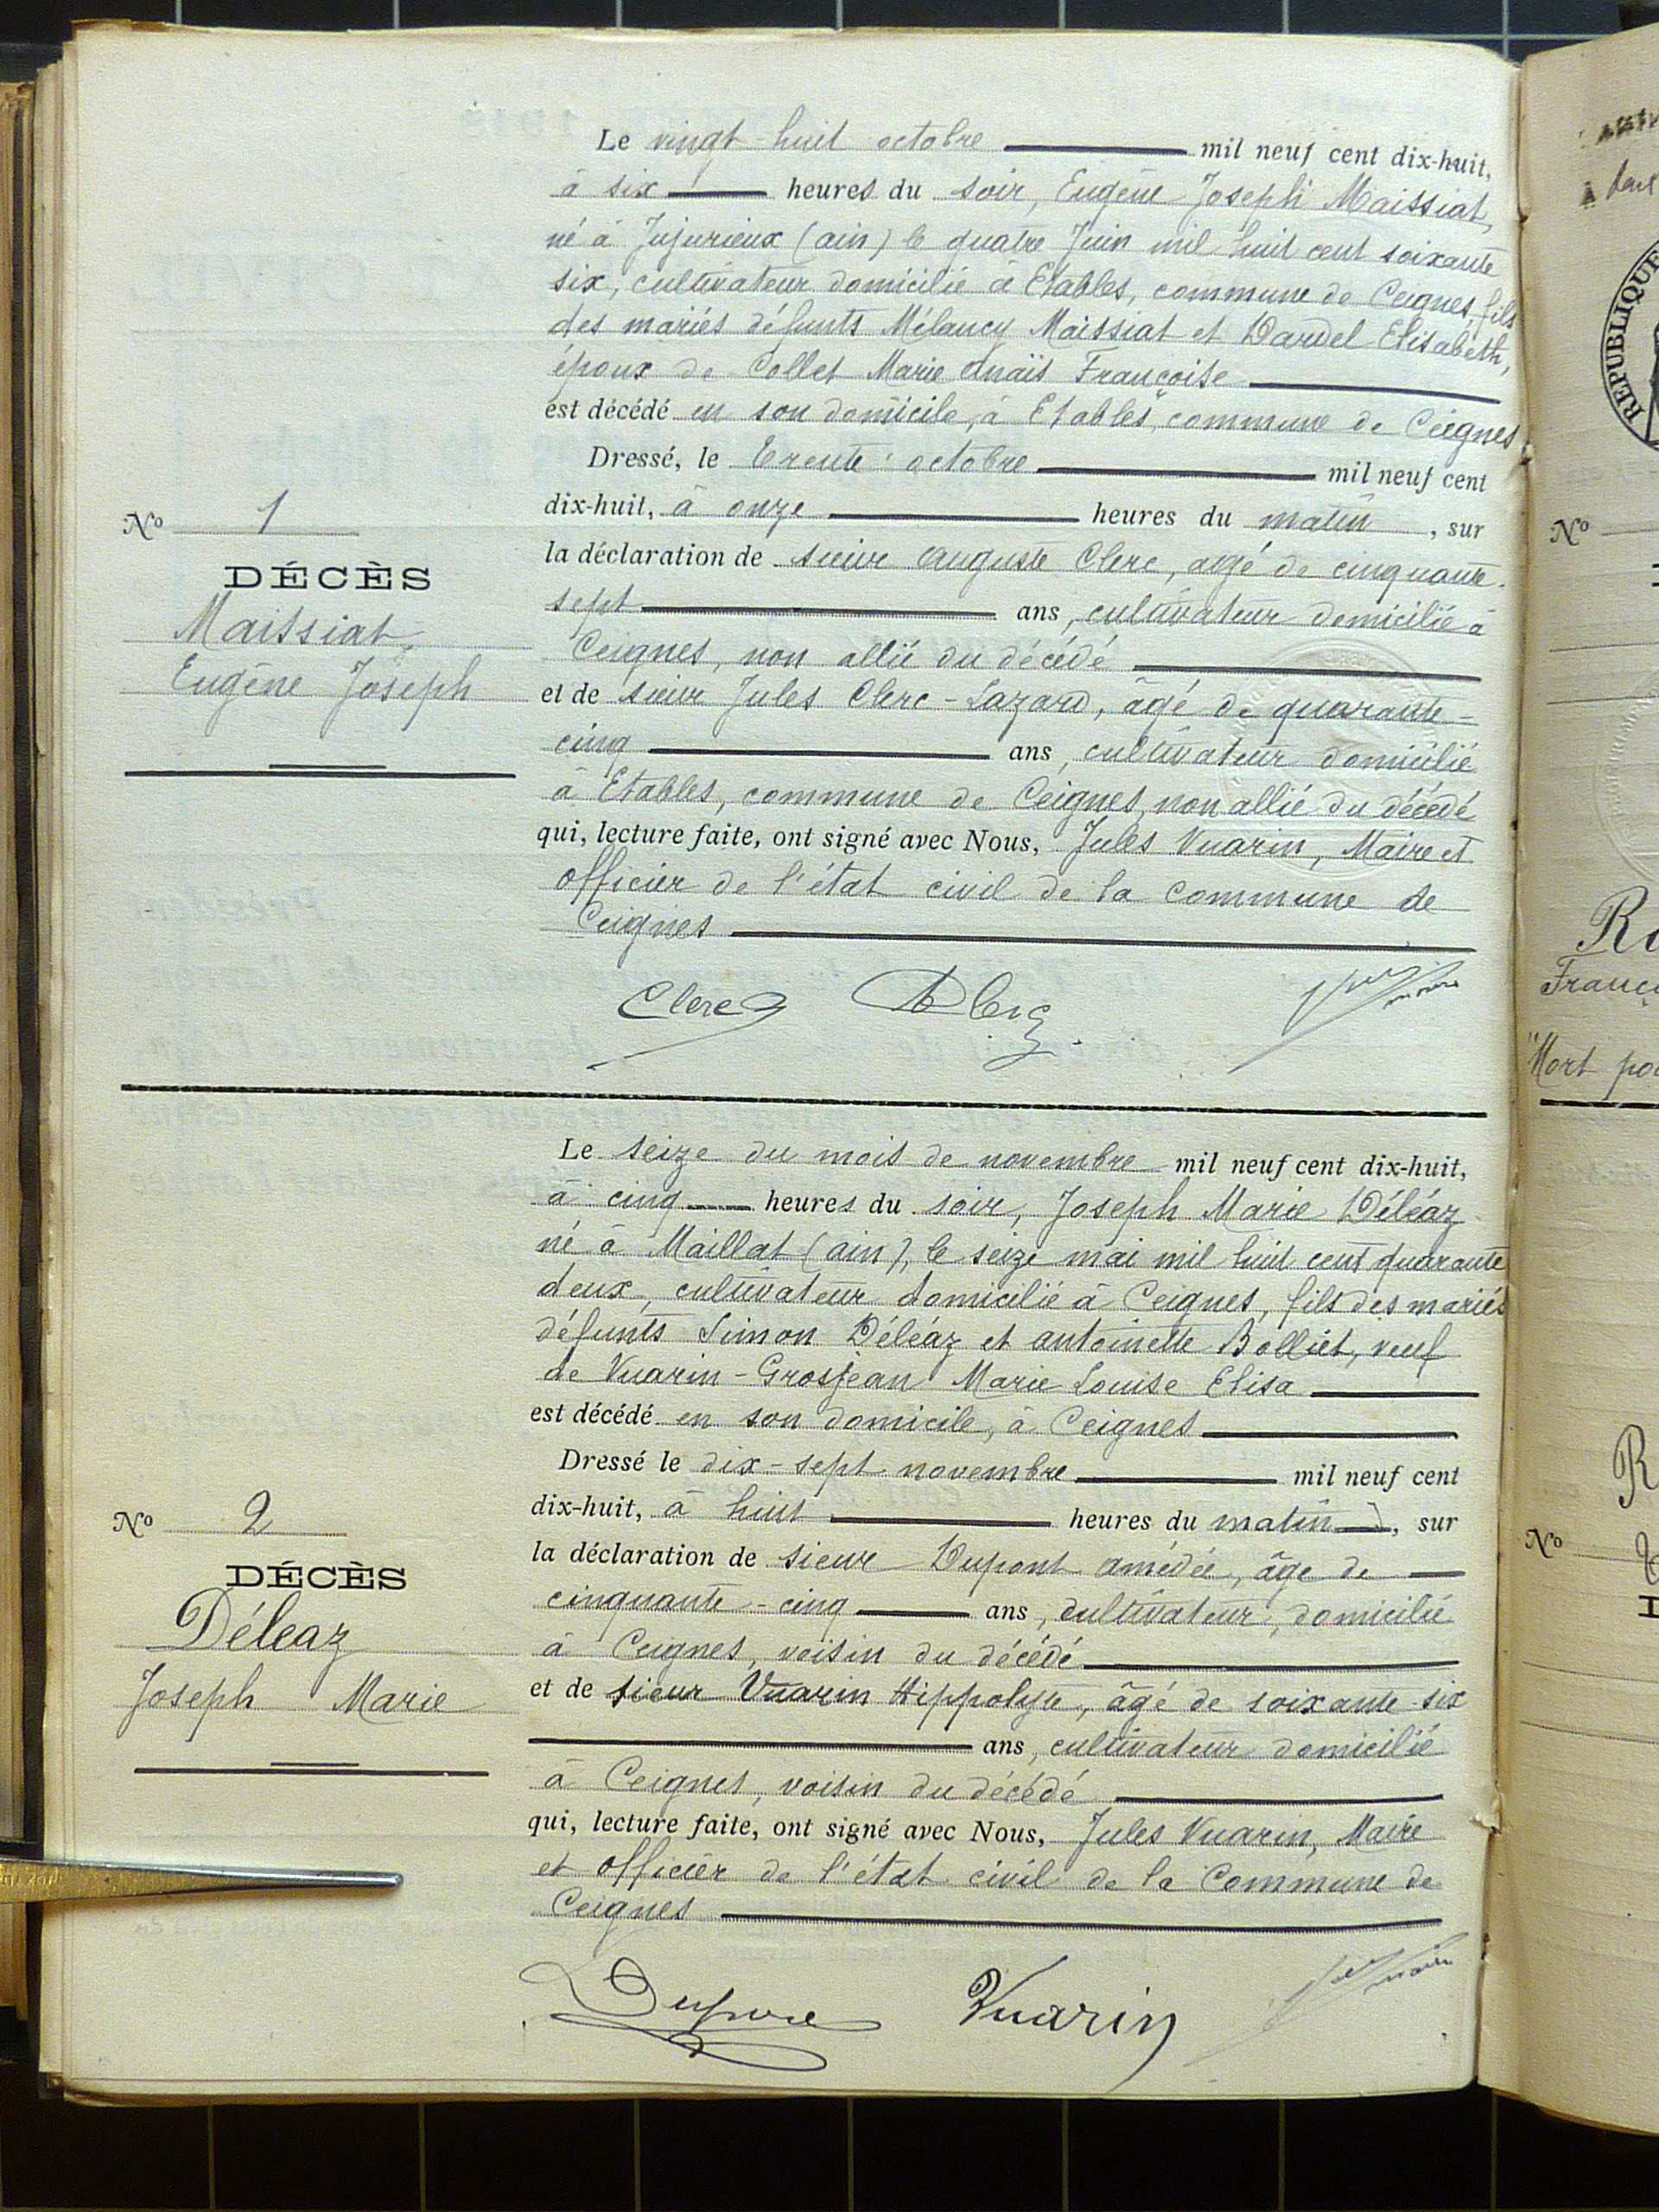 Le vingt-huit octobre mil neuf cent dix-huit,
à six heures du soir, Eugène Joseph Maissiat,
né à Jujurieux (ain) le quatre Juin mil huit cent soixante
six, cultivateur domicilié à Etables, commune de Ceignes, fils
des mariés défunts Mélancy Maissiat et Dardel Elisabeth,
époux de Collet Marie Anaïs Françoise
est décédé en son domicile, à Etables, commune de Ceignes
Dressé, le trente octobre mil neuf cent
dix-huit, à onze heures du matin, sur
la déclaration de sieur Auguste Clerc, agé de cinquante-
sept ans, cultivateur domicilié à
Ceignes, non allié du décédé
et de sieur Jules Clerc-Lazard, âgé de quarante-
cinq ans, cultivateur domicilié
à Etables, commune de Ceignes, non allié du décédé
qui, lecture faite, ont signé avec Nous, Jules Vuarin, Maire et
officier de l'état civil de la commune de
Ceignes
Clerc
N° 1
DÉCÈS
Maissiat
Eugène Joseph
Le seize du mois de novembre mil neuf cent dix-huit,
à cinq heures du soir, Joseph Marie Déléaz
né à Maillat (ain), le seize mai mil huit cent quarante
deux, cultivateur domicilié à Ceignes, fils des mariés
défunts Simon Déléaz et antoinette Bolliet, veuf
de Vuarin-Grosjean Marie Louise Elisa
est décédé en son domicile, à Ceignes
Dressé le dix-sept novembre mil neuf cent
dix-huit, à huit heures du matin, sur
la déclaration de sieur Dupont amédée, âge de
cinquante-cinq ans, cultivateur, domicilié
à Ceignes, voisin du décédé
et de sieur Vuarin Hippolyte, âgé de soixante-six
ans, cultivateur domicilié
à Ceignes, voisin du décédé
qui, lecture faite, ont signé avec Nous, Jules Vuarin, Maire
et officier de l'état civil de la Commune de
Ceignes
Vuarin
N° 2
DÉCÈS
Déléaz
Joseph Marie
REPUBLIQUE
N°
"Mort
N°